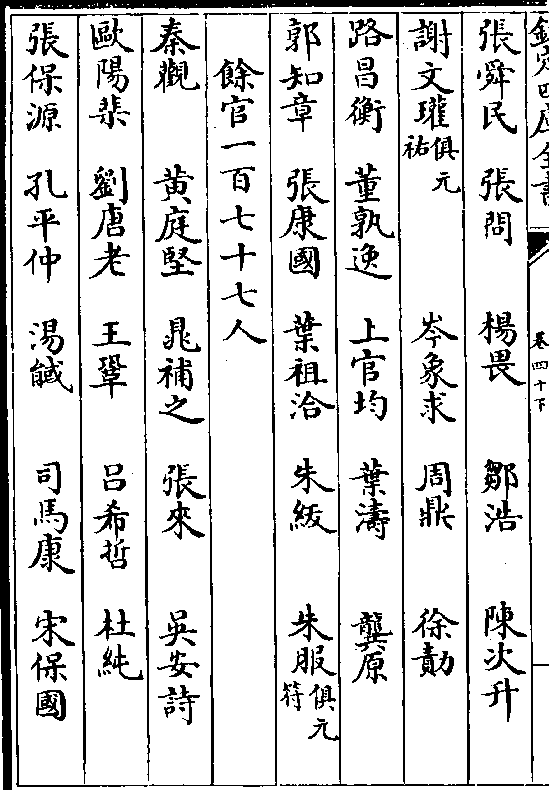 欽定四庫全書
卷四十下
張舜民 張問 楊畏 鄒浩 陳次升
謝文瓘俱元祐 岑象求 周鼎 徐勣
路昌衡 董孰逸 上官均 葉濤 龔原
郭知章 張康國 葉祖洽 朱紱 朱服俱元符
餘官一百七十七人
秦觀 黄庭堅 晁補之 張來 吳安詩
歐陽棐 劉唐老 王鞏 呂希哲 杜純
張保源 孔平仲 湯馘 司馬康 宋保國